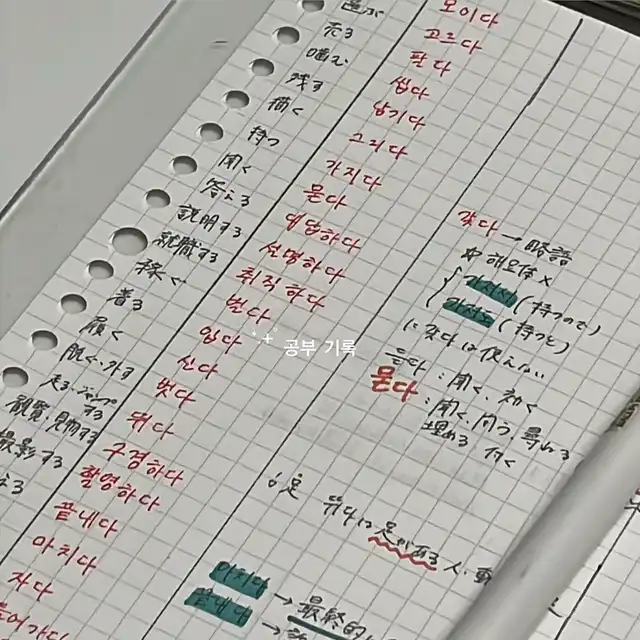 選ぶ
売る
噛む
残す
描く
持つ
聞く
答える
説明する
就職する
稼ぐ
着る
履く
脱ぐ・かす
走る・ジャンプする
観覧・見物する
撮影する
모이다
고르다
팔다
씹다
남기다
그리다
가지다
묻다
대답하다
설명하다
취직하다
벌다
입다
신다
벗다
뛰다
구경하다
촬영하다
끝내다
마치다
자다
들어가다
갖다 → 略語
해요体 X
가지서 (持つので)
가지고 (持つと)
に갖다は使えない
듣다 : 聞く、効く
묻다 : 聞く、問う、尋ねる
埋める、付く
공부 기록
뛰다は足がある人・動
마치다
끝내다
→ 最終的に